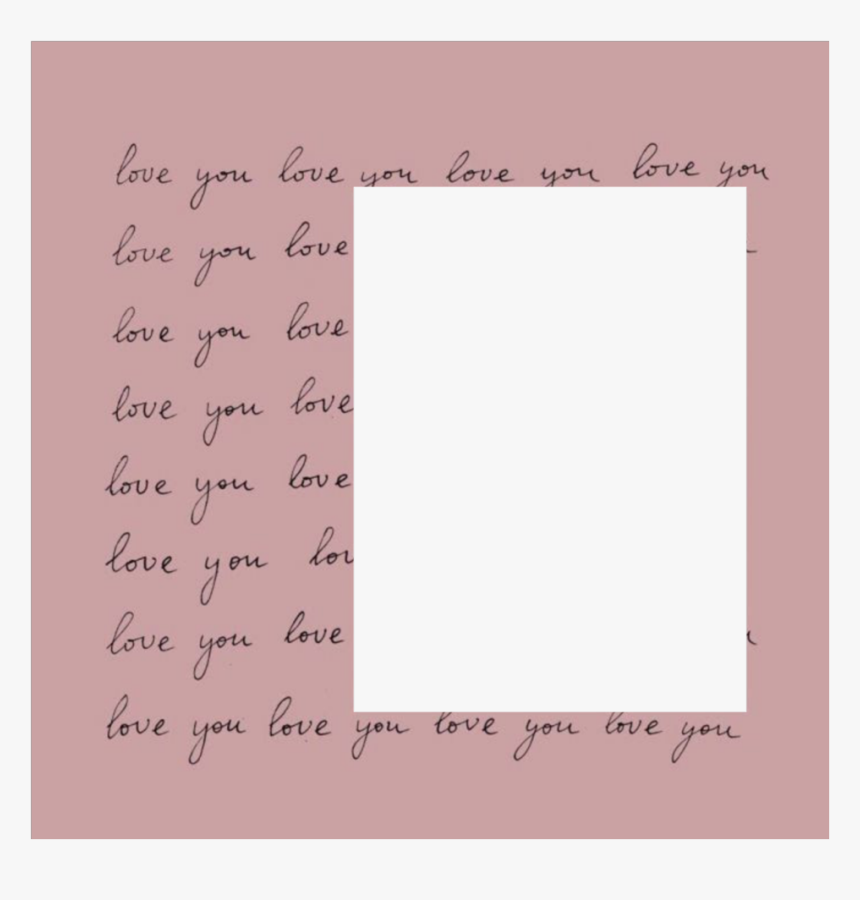 love you love you love you love you
love you love
love you love
love you love
love you love
love you
love you love
love you love you love you love you